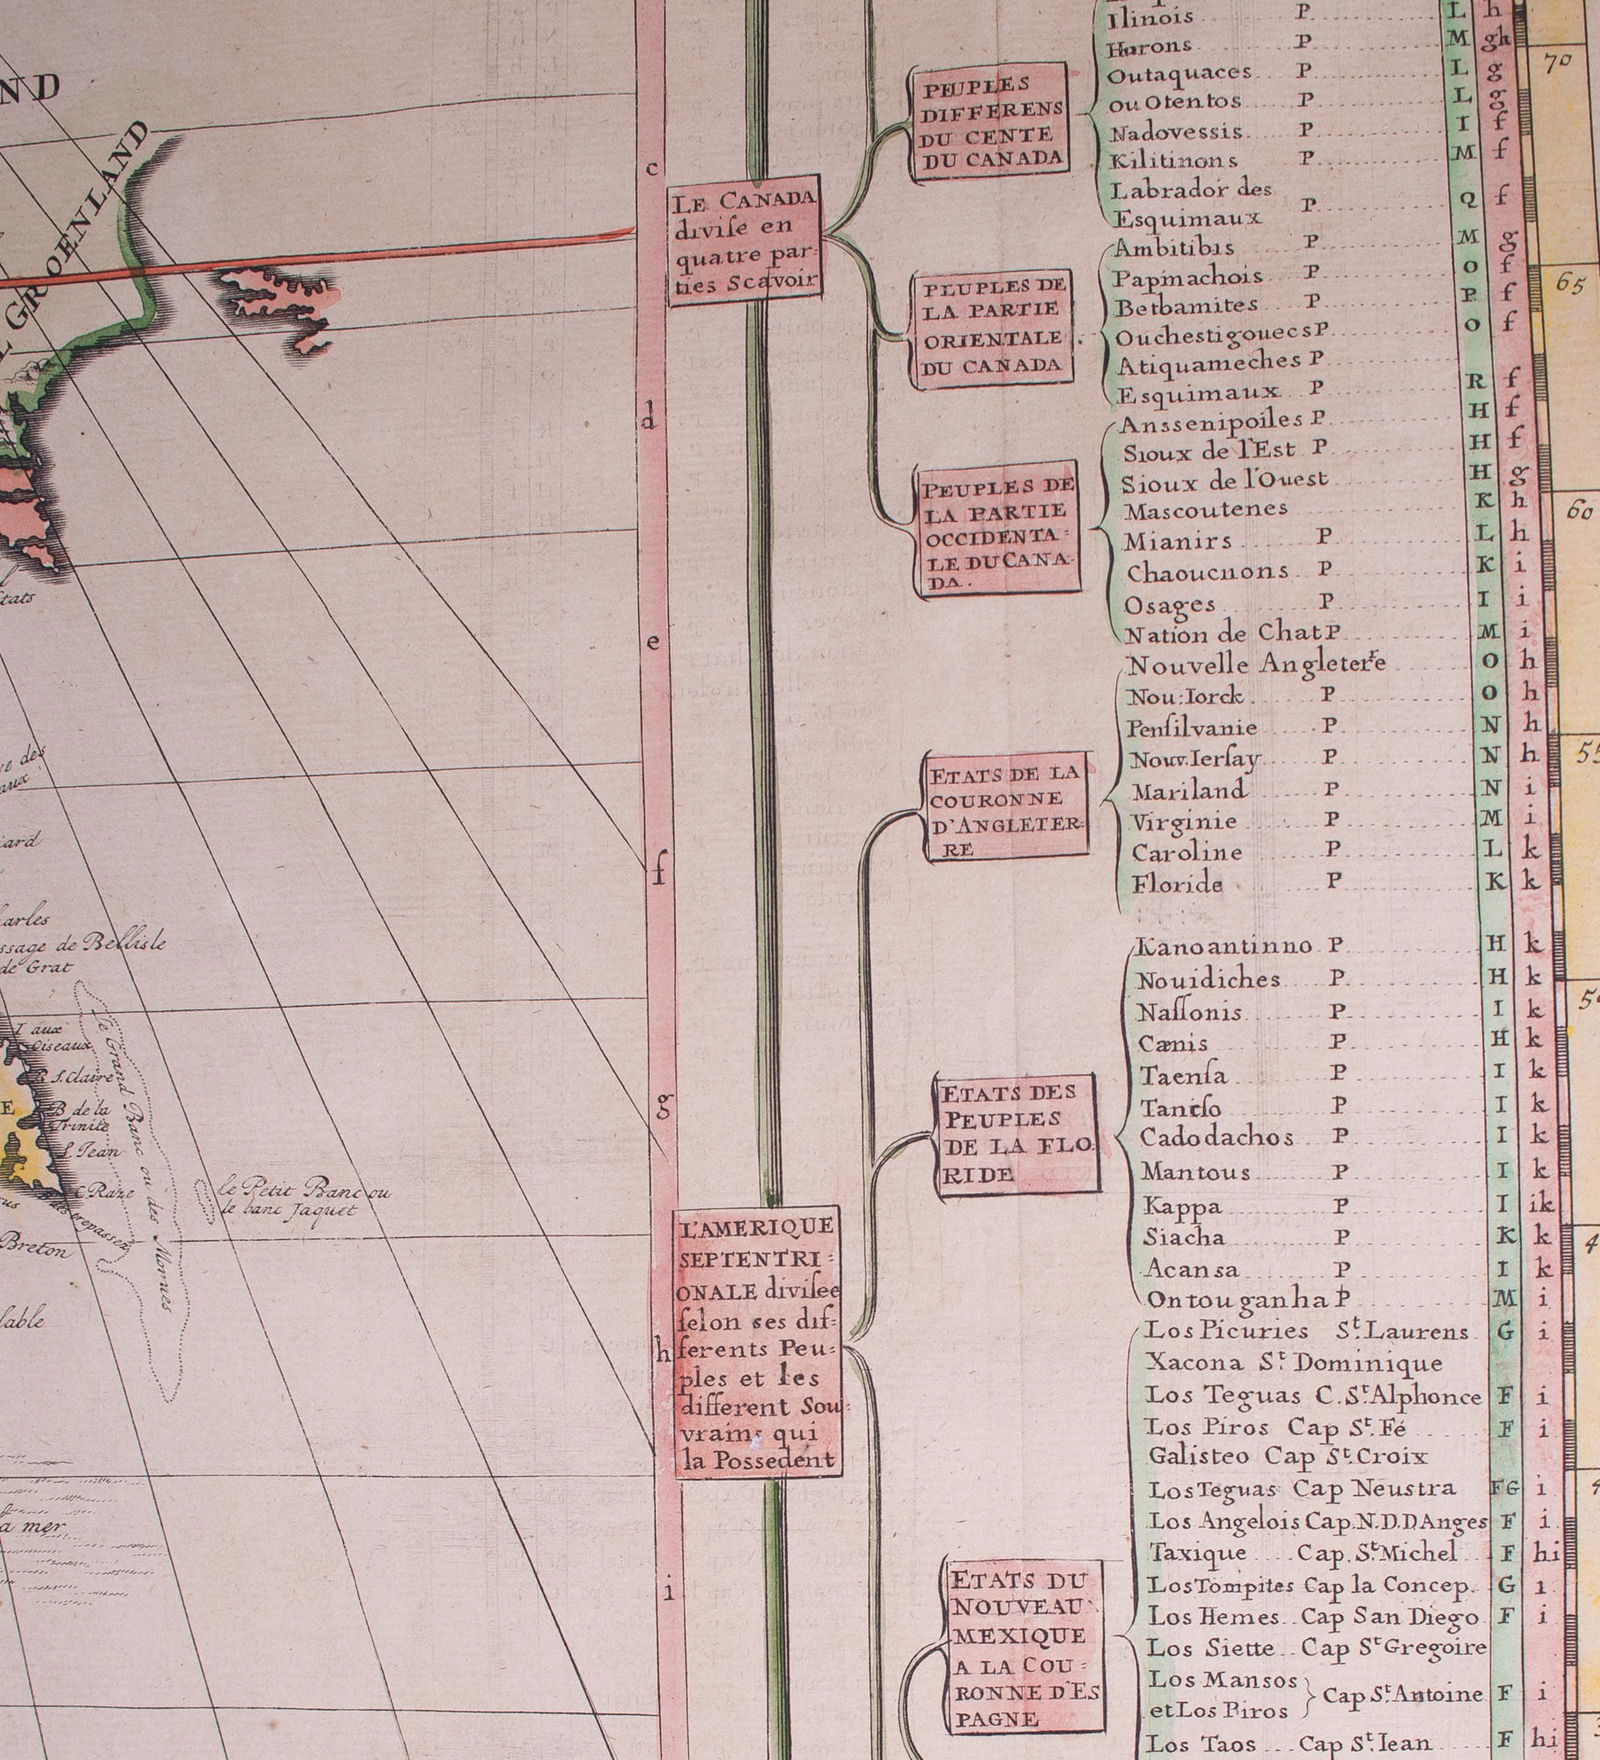 ND
GROENLAND
tats
ard
arles
ssage de Bellisle
de Grat
I aux
Oiseaux
B S. Claire
B de la
Trinite
S. Jean
C Raze
Breton
le Grand Banc ou des Mornes
le Petit Banc ou
le banc Jaquet
lable
a mer
c
d
e
f
g
h
i
LE CANADA
divise en
quatre par-
ties Scavoir
L'AMERIQUE
SEPTENTRI=
ONALE divisee
selon ses dif=
ferents Peu=
ples et les
different Sou=
vrains qui
la Possedent
PEUPLES
DIFFERENS
DU CENTE
DU CANADA
Ilinois P L h
Hurons P M gh
Outaquaces P L g
ou Otentos P L g
Nadovessis P I f
Kilitinons P M f
Labrador des
Esquimaux P Q f
PEUPLES DE
LA PARTIE
ORIENTALE
DU CANADA
Ambitibis P M g
Papinachois P O f
Betbamites P P f
Ouchestigouecs P O f
Atiquameches P
Esquimaux P R f
PEUPLES DE
LA PARTIE
OCCIDENTA=
LE DU CANA-
DA.
Anssenipoiles P H f
Sioux de l'Est P H f
Sioux de l'Ouest H g
Mascoutenes K h
Mianirs P L h
Chaoucnons P K i
Osages P I i
Nation de Chat P M i
ETATS DE LA
COURONNE
D'ANGLETER-
RE
Nouvelle Angleterre O h
Nou: Iorck P O h
Pensilvanie P N h
Nouv. Iersay P N h
Mariland P N i
Virginie P M i
Caroline P L k
Floride P K k
ETATS DES
PEUPLES
DE LA FLO
RIDE
Kanoantinno P H k
Nouidiches P H k
Nassonis P I k
Cænis P H k
Taensa P I k
Tancso P I k
Cadodachos P I k
Mantous P I k
Kappa P I ik
Siacha P K k
Acansa P I k
Ontouganha P M i
ETATS DU
NOUVEAU
MEXIQUE
A LA COU=
RONNE D'ES
PAGNE
Los Picuries St. Laurens G i
Xacona St. Dominique
Los Teguas C. St. Alphonce F i
Los Piros Cap St. Fé F i
Galisteo Cap St. Croix
Los Teguas Cap Neustra FG i
Los Angelois Cap. N.D.D Anges F i
Taxique Cap. St. Michel F hi
Los Tompites Cap la Concep. G i
Los Hemes Cap San Diego F i
Los Siette Cap St Gregoire
Los Mansos
et Los Piros } Cap St. Antoine F i
Los Taos Cap St. Iean F hi
70
65
60
55